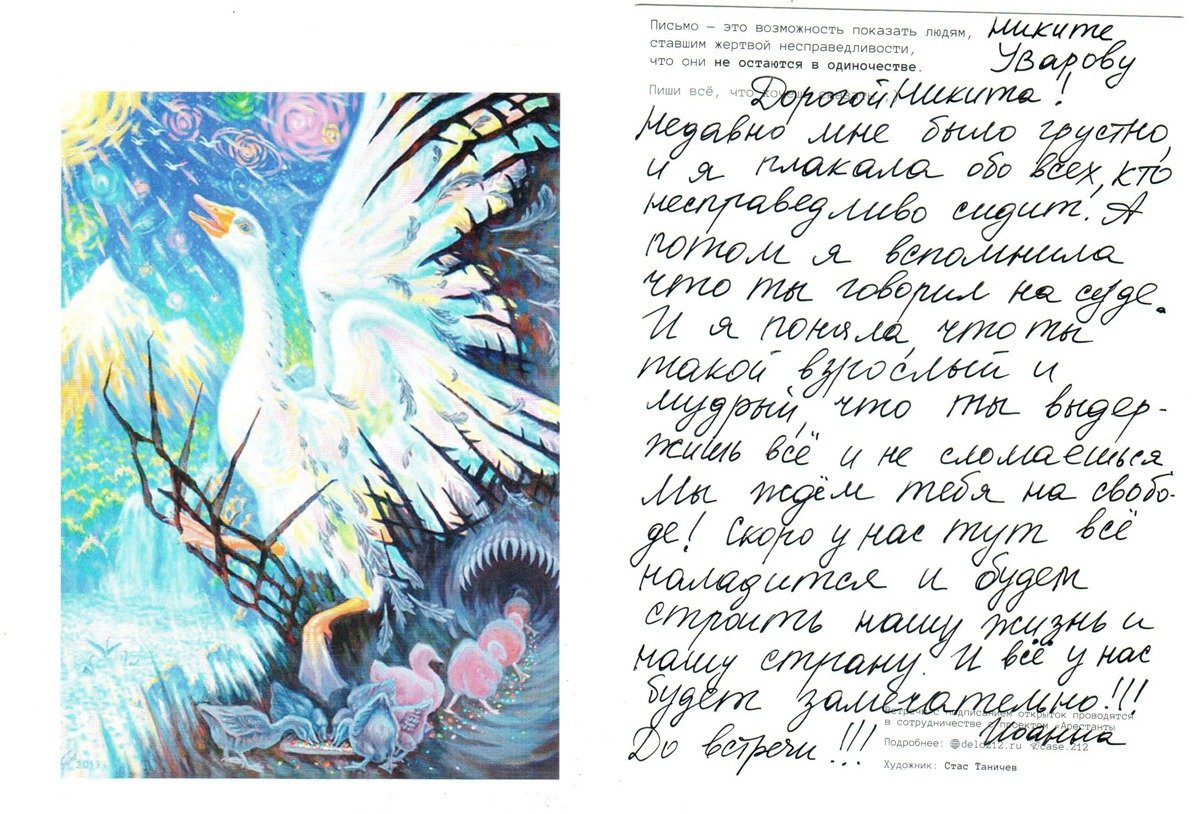 Письмо — это возможность показать людям,
ставшим жертвой несправедливости,
что они не остаются в одиночестве.
Никите
Уварову
Пиши всё, что хочешь
Дорогой Никита!
Недавно мне было грустно,
и я плакала обо всех, кто
несправедливо сидит. А
потом я вспомнила
что ты говорил на суде.
И я поняла, что ты
такой взрослый и
мудрый, что ты выдер-
жишь всё и не сломаешься.
Мы ждём тебя на свобо-
де! Скоро у нас тут всё
наладится и будем
строить нашу жизнь и
нашу страну. И всё у нас
будет замечательно!!!
До встречи!!!
Иоанна
подписанием открыток проводятся
в сотрудничестве с проектом «Арестанты
Подробнее: delo212.ru case.212
Художник: Стас Таничев
2013